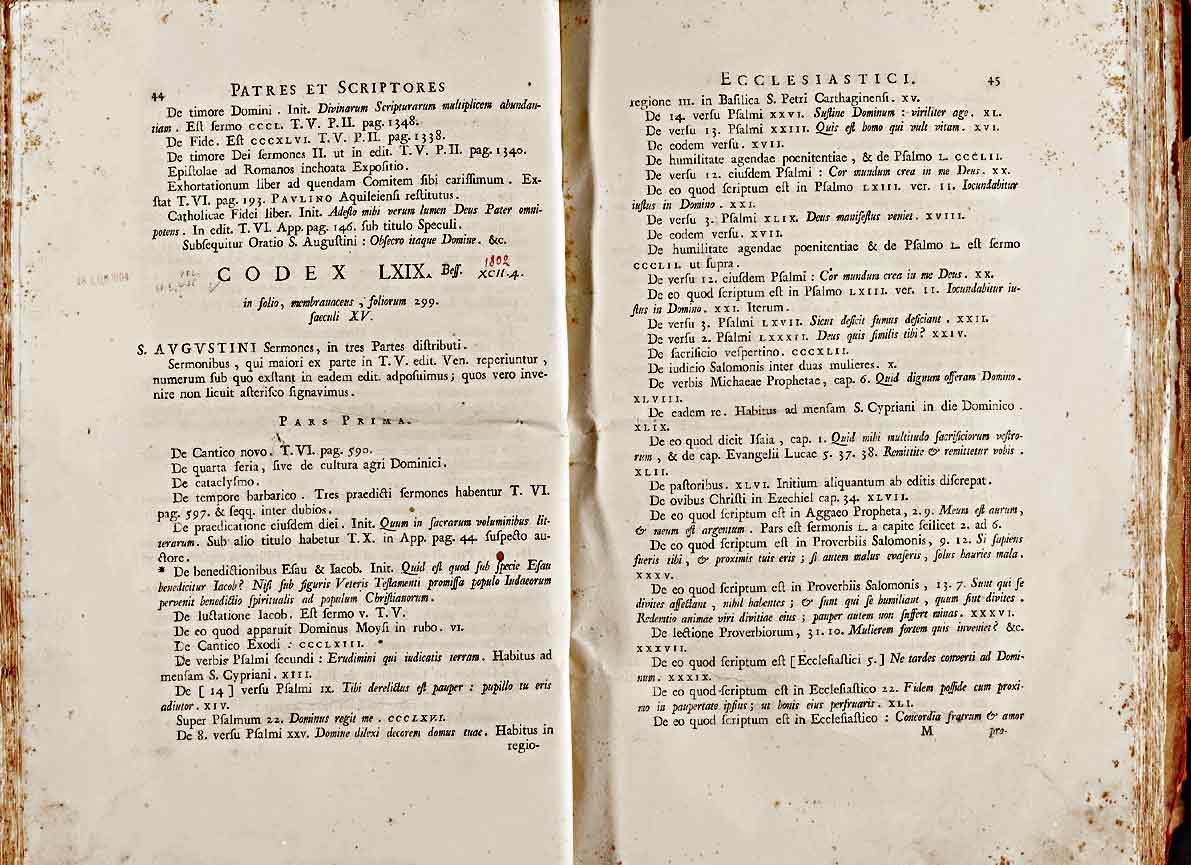 44 PATRES ET SCRIPTORES
De timore Domini . Init. Divinarum Scripturarum multiplicem abundan-
tiam . Eſt ſermo CCCL. T. V. P. II. pag. 1348.
De Fide. Eſt CCCXLVI. T. V. P. II. pag. 1338.
De timore Dei ſermones II. ut in edit. T. V. P. II. pag. 1340.
Epiſtolae ad Romanos inchoata Expoſitio.
Exhortationum liber ad quendam Comitem ſibi cariſſimum . Ex-
ſtat T. VI. pag. 193. PAVLINO Aquileienſi reſtitutus.
Catholicae Fidei liber. Init. Adeſto mihi verum lumen Deus Pater omni-
potens . In edit. T. VI. App. pag. 146. ſub titulo Speculi.
Subſequitur Oratio S. Auguſtini : Obſecro itaque Domine. &c.
1802
CODEX LXIX. Beſſ. XCII.4.
in folio, membranaceus , foliorum 299.
ſaeculi XV.
S. AVGVSTINI Sermones, in tres Partes diſtributi.
Sermonibus , qui maiori ex parte in T. V. edit. Ven. reperiuntur ,
numerum ſub quo exſtant in eadem edit. adpoſuimus; quos vero inve-
nire non licuit aſteriſco ſignavimus.
PARS PRIMA.
De Cantico novo. T. VI. pag. 590.
De quarta feria, ſive de cultura agri Dominici.
De cataclyſmo.
De tempore barbarico . Tres praedicti ſermones habentur T. VI.
pag. 597. & ſeqq. inter dubios.
De praedicatione eiuſdem diei. Init. Quum in ſacrarum voluminibus lit-
terarum. Sub alio titulo habetur T. X. in App. pag. 44. ſuſpecto au-
ctore.
* De benedictionibus Eſau & Iacob. Init. Quid eſt quod ſub ſpecie Eſau
benedicitur Iacob? Niſi ſub figuris Veteris Teſtamenti promiſſa populo Iudaeorum
pervenit benedictio ſpiritualis ad populum Chriſtianorum.
De luctatione Iacob. Eſt ſermo V. T. V.
De eo quod apparuit Dominus Moyſi in rubo. VI.
De Cantico Exodi : CCCLXIII. *
De verbis Pſalmi ſecundi : Erudimini qui iudicatis terram. Habitus ad
menſam S. Cypriani. XIII.
De [ 14 ] verſu Pſalmi IX. Tibi derelictus eſt pauper : pupillo tu eris
adiutor. XIV.
Super Pſalmum 22. Dominus regit me . CCCLXVI.
De 8. verſu Pſalmi XXV. Domine dilexi decorem domus tuae. Habitus in
regio-
ECCLESIASTICI. 45
regione III. in Baſilica S. Petri Carthaginenſi. XV.
De 14. verſu Pſalmi XXVI. Suſtine Dominum : viriliter age. XL.
De verſu 13. Pſalmi XXXIII. Quis eſt homo qui vult vitam. XVI.
De eodem verſu. XVII.
De humilitate agendae poenitentiae , & de Pſalmo L. CCCLII.
De verſu 12. eiuſdem Pſalmi : Cor mundum crea in me Deus. XX.
De eo quod ſcriptum eſt in Pſalmo LXIII. ver. 11. Iocundabitur
iuſtus in Domino . XXI.
De verſu 3. Pſalmi XLIX. Deus manifeſtus veniet. XVIII.
De eodem verſu. XVII.
De humilitate agendae poenitentiae & de Pſalmo L. eſt ſermo
CCCLII. ut ſupra.
De verſu 12. eiuſdem Pſalmi : Cor mundum crea in me Deus. XX.
De eo quod ſcriptum eſt in Pſalmo LXIII. ver. 11. Iocundabitur iu-
ſtus in Domino. XXI. Iterum.
De verſu 3. Pſalmi LXVII. Sicut deficit fumus deficiant . XXII.
De verſu 2. Pſalmi LXXXII. Deus quis ſimilis tibi? XXIV.
De ſacrificio veſpertino. CCCXLII.
De iudicio Salomonis inter duas mulieres. X.
De verbis Michaeae Prophetae, cap. 6. Quid dignum offeram Domino.
XLVIII.
De eadem re. Habitus ad menſam S. Cypriani in die Dominico .
XLIX.
De eo quod dicit Iſaia , cap. 1. Quid mihi multitudo ſacrificiorum veſtro-
rum , & de cap. Evangelii Lucae 5. 37. 38. Remittite & remittetur vobis .
XLII.
De paſtoribus. XLVI. Initium aliquantum ab editis diſcrepat.
De ovibus Chriſti in Ezechiel cap. 34. XLVII.
De eo quod ſcriptum eſt in Aggaeo Propheta, 2. 9. Meum eſt aurum,
& meum eſt argentum . Pars eſt ſermonis L. a capite ſcilicet 2. ad 6.
De eo quod ſcriptum eſt in Proverbiis Salomonis, 9. 12. Si ſapiens
fueris tibi , & proximis tuis eris ; ſi autem malus evaſeris, ſolus hauries mala.
XXXV.
De eo quod ſcriptum eſt in Proverbiis Salomonis , 13. 7. Sunt qui ſe
divites affectant , nihil habentes ; & ſunt qui ſe humiliant , quum ſint divites .
Redemtio animae viri divitiae eius ; pauper autem non ſuffert minas. XXXVI.
De lectione Proverbiorum, 31. 10. Mulierem fortem quis inveniet? &c.
XXXVII.
De eo quod ſcriptum eſt [ Eccleſiaſtici 5. ] Ne tardes converti ad Domi-
num. XXXIX.
De eo quod ſcriptum eſt in Eccleſiaſtico 22. Fidem poſſide cum proxi-
mo in paupertate ipſius ; ut bonis eius perfruaris. XLI.
De eo quod ſcriptum eſt in Eccleſiaſtico : Concordia fratrum & amor
M pro-